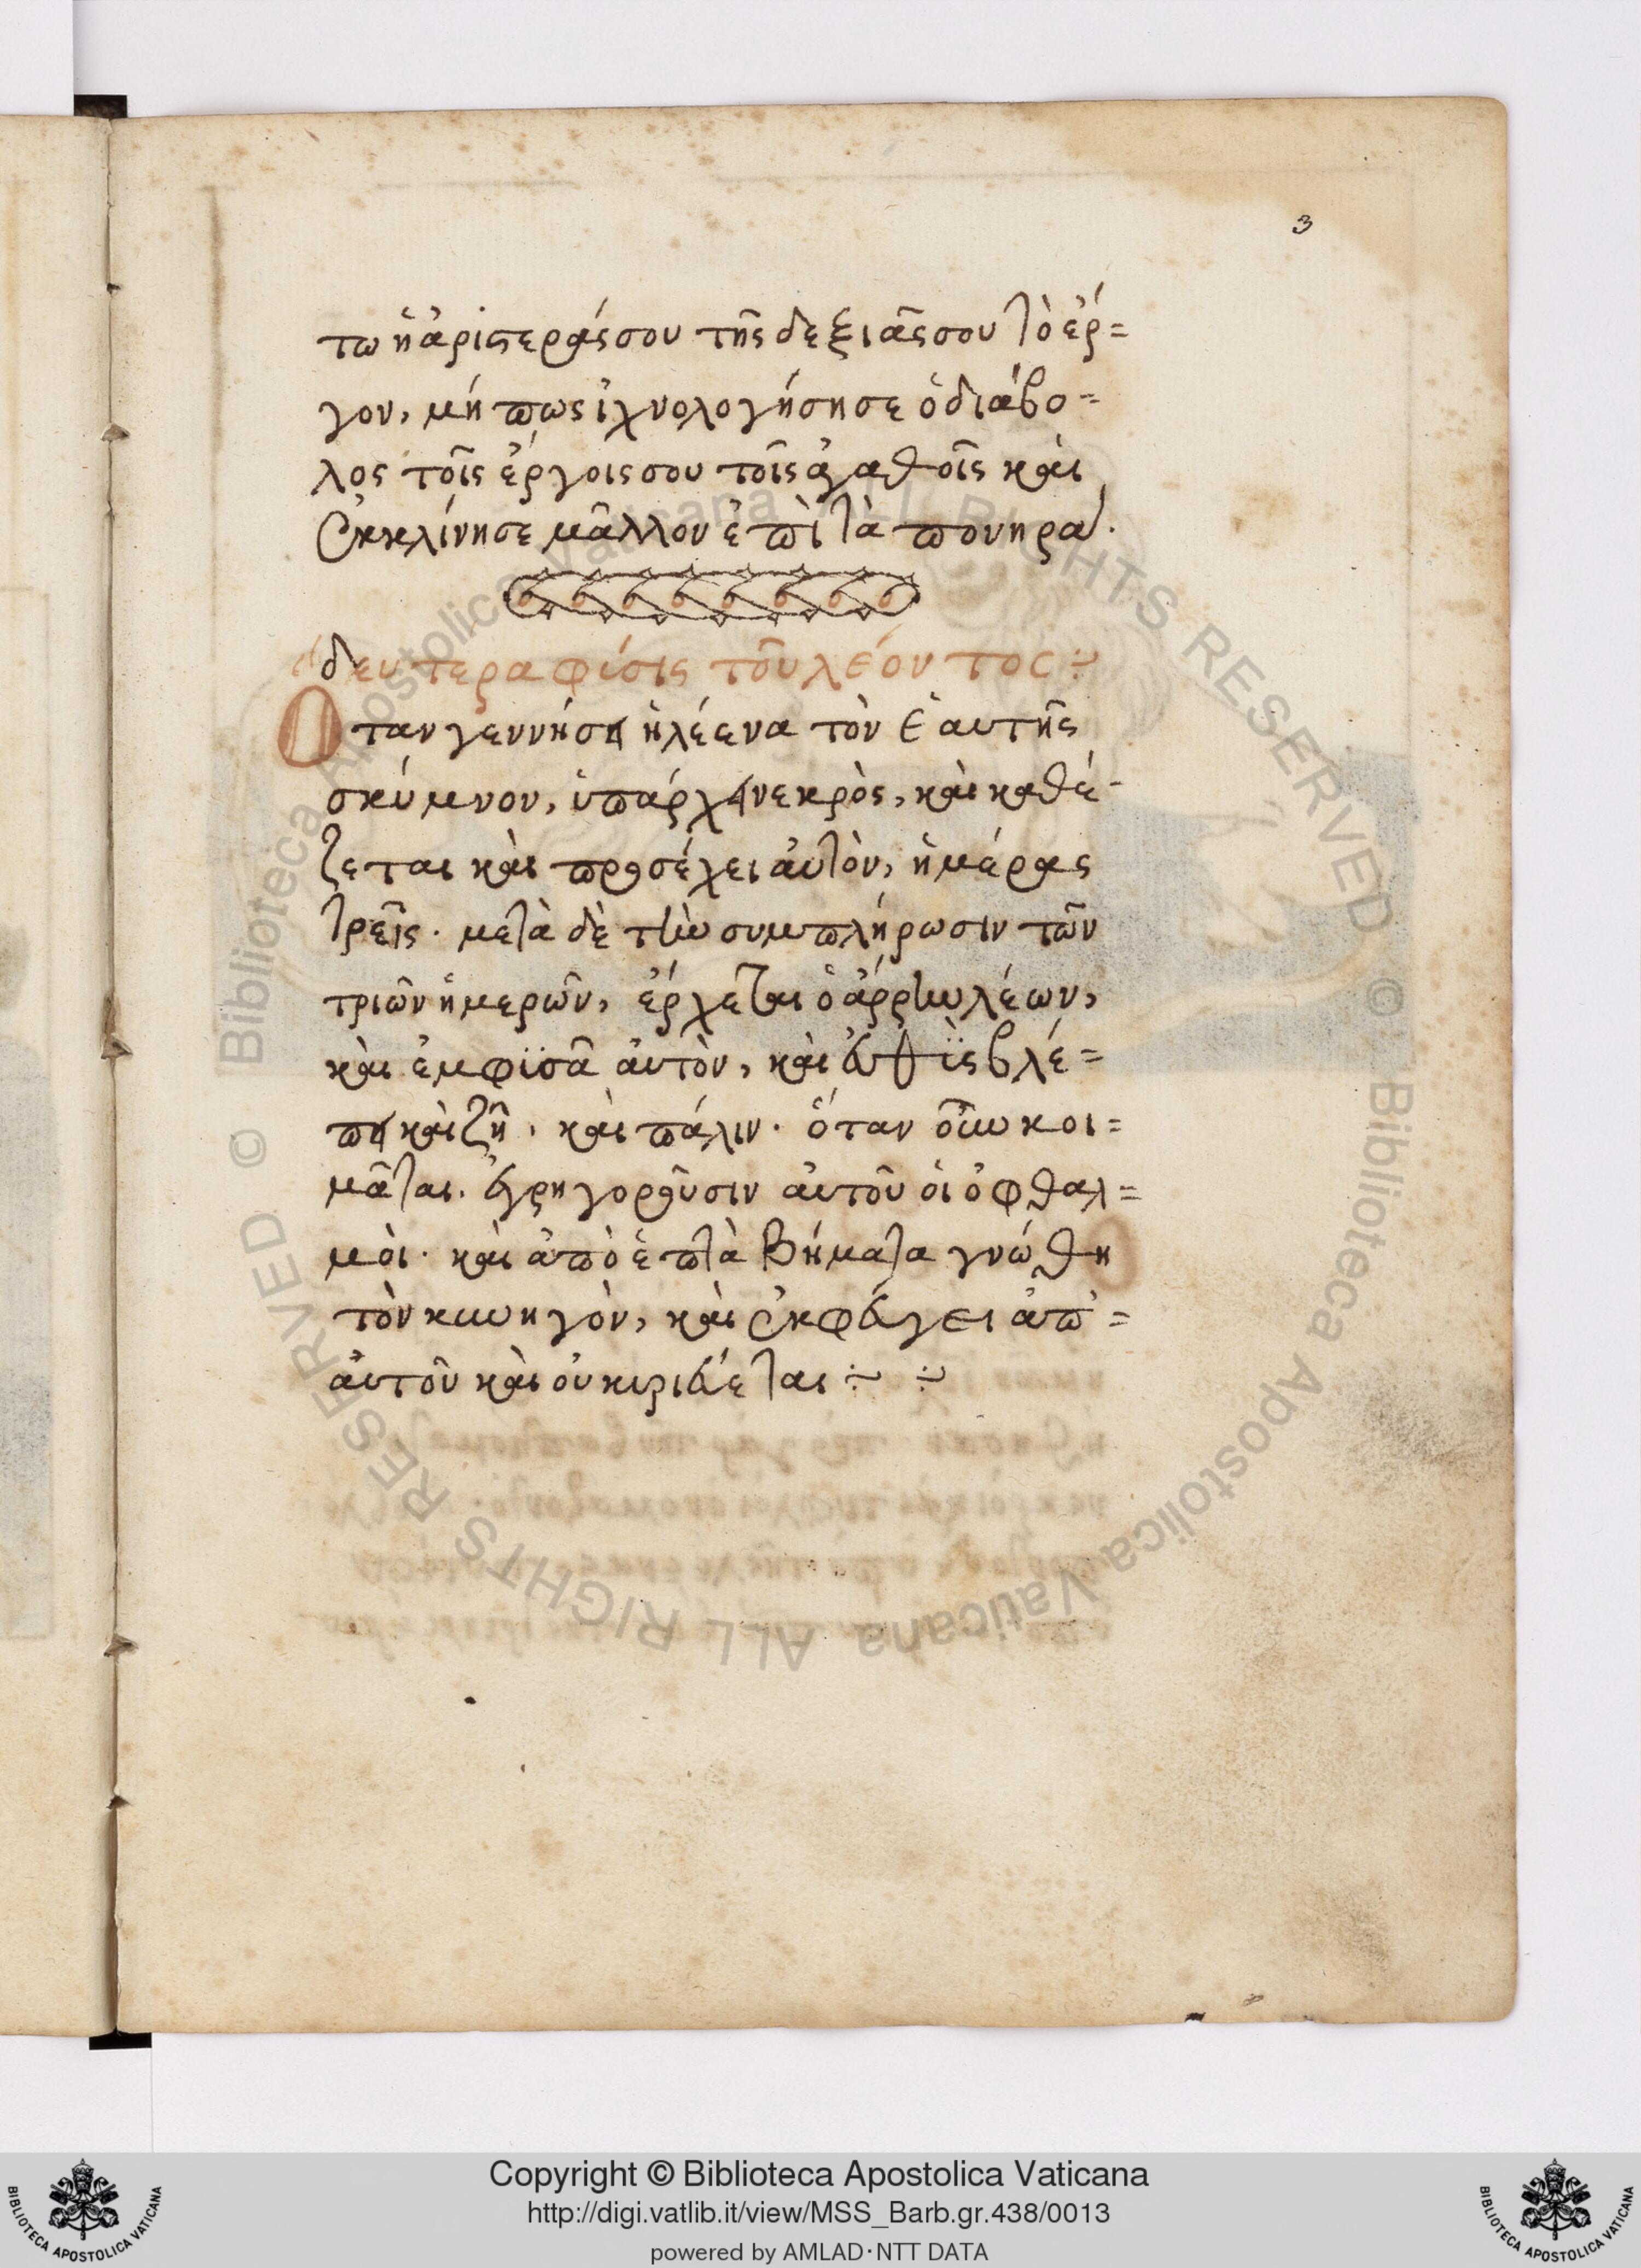 3
τω ἡ ἀριστεράς σου τῆς δεξιᾶς σου τὸ έρ=
γον, μή πως ἰχνολογήσησε ὁ διάβο=
λος τοῖς ἔργοις σου τοῖς ἀγαθοῖς καὶ
ἐκκλίνησε μᾶλλον ἐπὶ τὰ πονηρά.
δευτερα φίσις τοῦ λέόντος
Ὅταν γεννήση ἡ λέενα τὸν ἑαυτῆς
σκύμνον, ὑπάρχει νεκρὸς, καὶ καθέ-
ζεται καὶ προσέχει αὐτὸν, ἡμέρας
τρεῖς. μετὰ δὲ τὴν συμπλήρωσιν τῶν
τριῶν ἡμερῶν, ἔρχεται ὁ ἄρρην λέων,
καὶ ἐμφϊσᾶ αὐτὸν, καὶ εὐθϊς βλέ=
πει καὶ ζῆ. καὶ πάλιν. ὅταν οὖν κοι=
μᾶται. ἐγρηγοροῦσιν αὐτοῦ οἱ ὀφθαλ=
μοὶ. καὶ ἀπὸ ἑπτὰ βήματα γνώθη
τὸν κυνηγὸν, καὶ ἐκφεύγει ἀπ'=
αὐτοῦ καὶ οὐ κιριεύεται
Copyright © Biblioteca Apostolica Vaticana
http://digi.vatlib.it/view/MSS_Barb.gr.438/0013
powered by AMLAD·NTT DATA
BIBLIOTECA APOSTOLICA VATICANA
BIBLIOTECA APOSTOLICA VATICANA
© Biblioteca Apostolica Vaticana ALL RIGHTS RESERVED
© Biblioteca Apostolica Vaticana ALL RIGHTS RESERVED